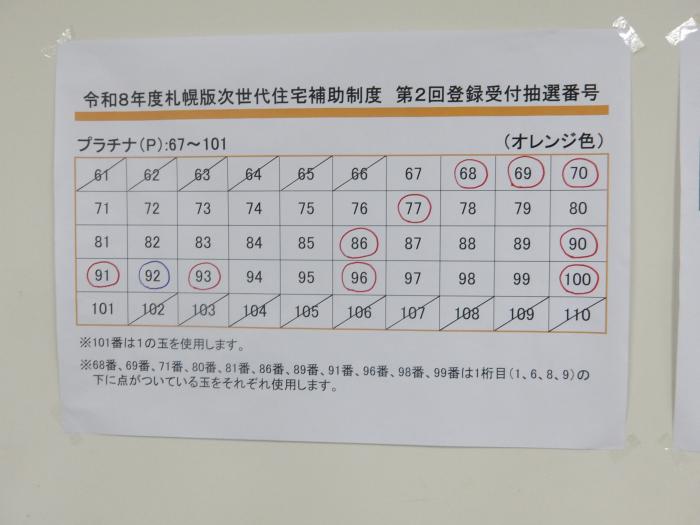 令和8年度札幌版次世代住宅補助制度 第2回登録受付抽選番号
プラチナ(P):67～101 (オレンジ色)
61 62 63 64 65 66 67 68 69 70
71 72 73 74 75 76 77 78 79 80
81 82 83 84 85 86 87 88 89 90
91 92 93 94 95 96 97 98 99 100
101 102 103 104 105 106 107 108 109 110
※101番は1の玉を使用します。
※68番、69番、71番、80番、81番、86番、89番、91番、96番、98番、99番は1桁目(1、6、8、9)の
下に点がついている玉をそれぞれ使用します。